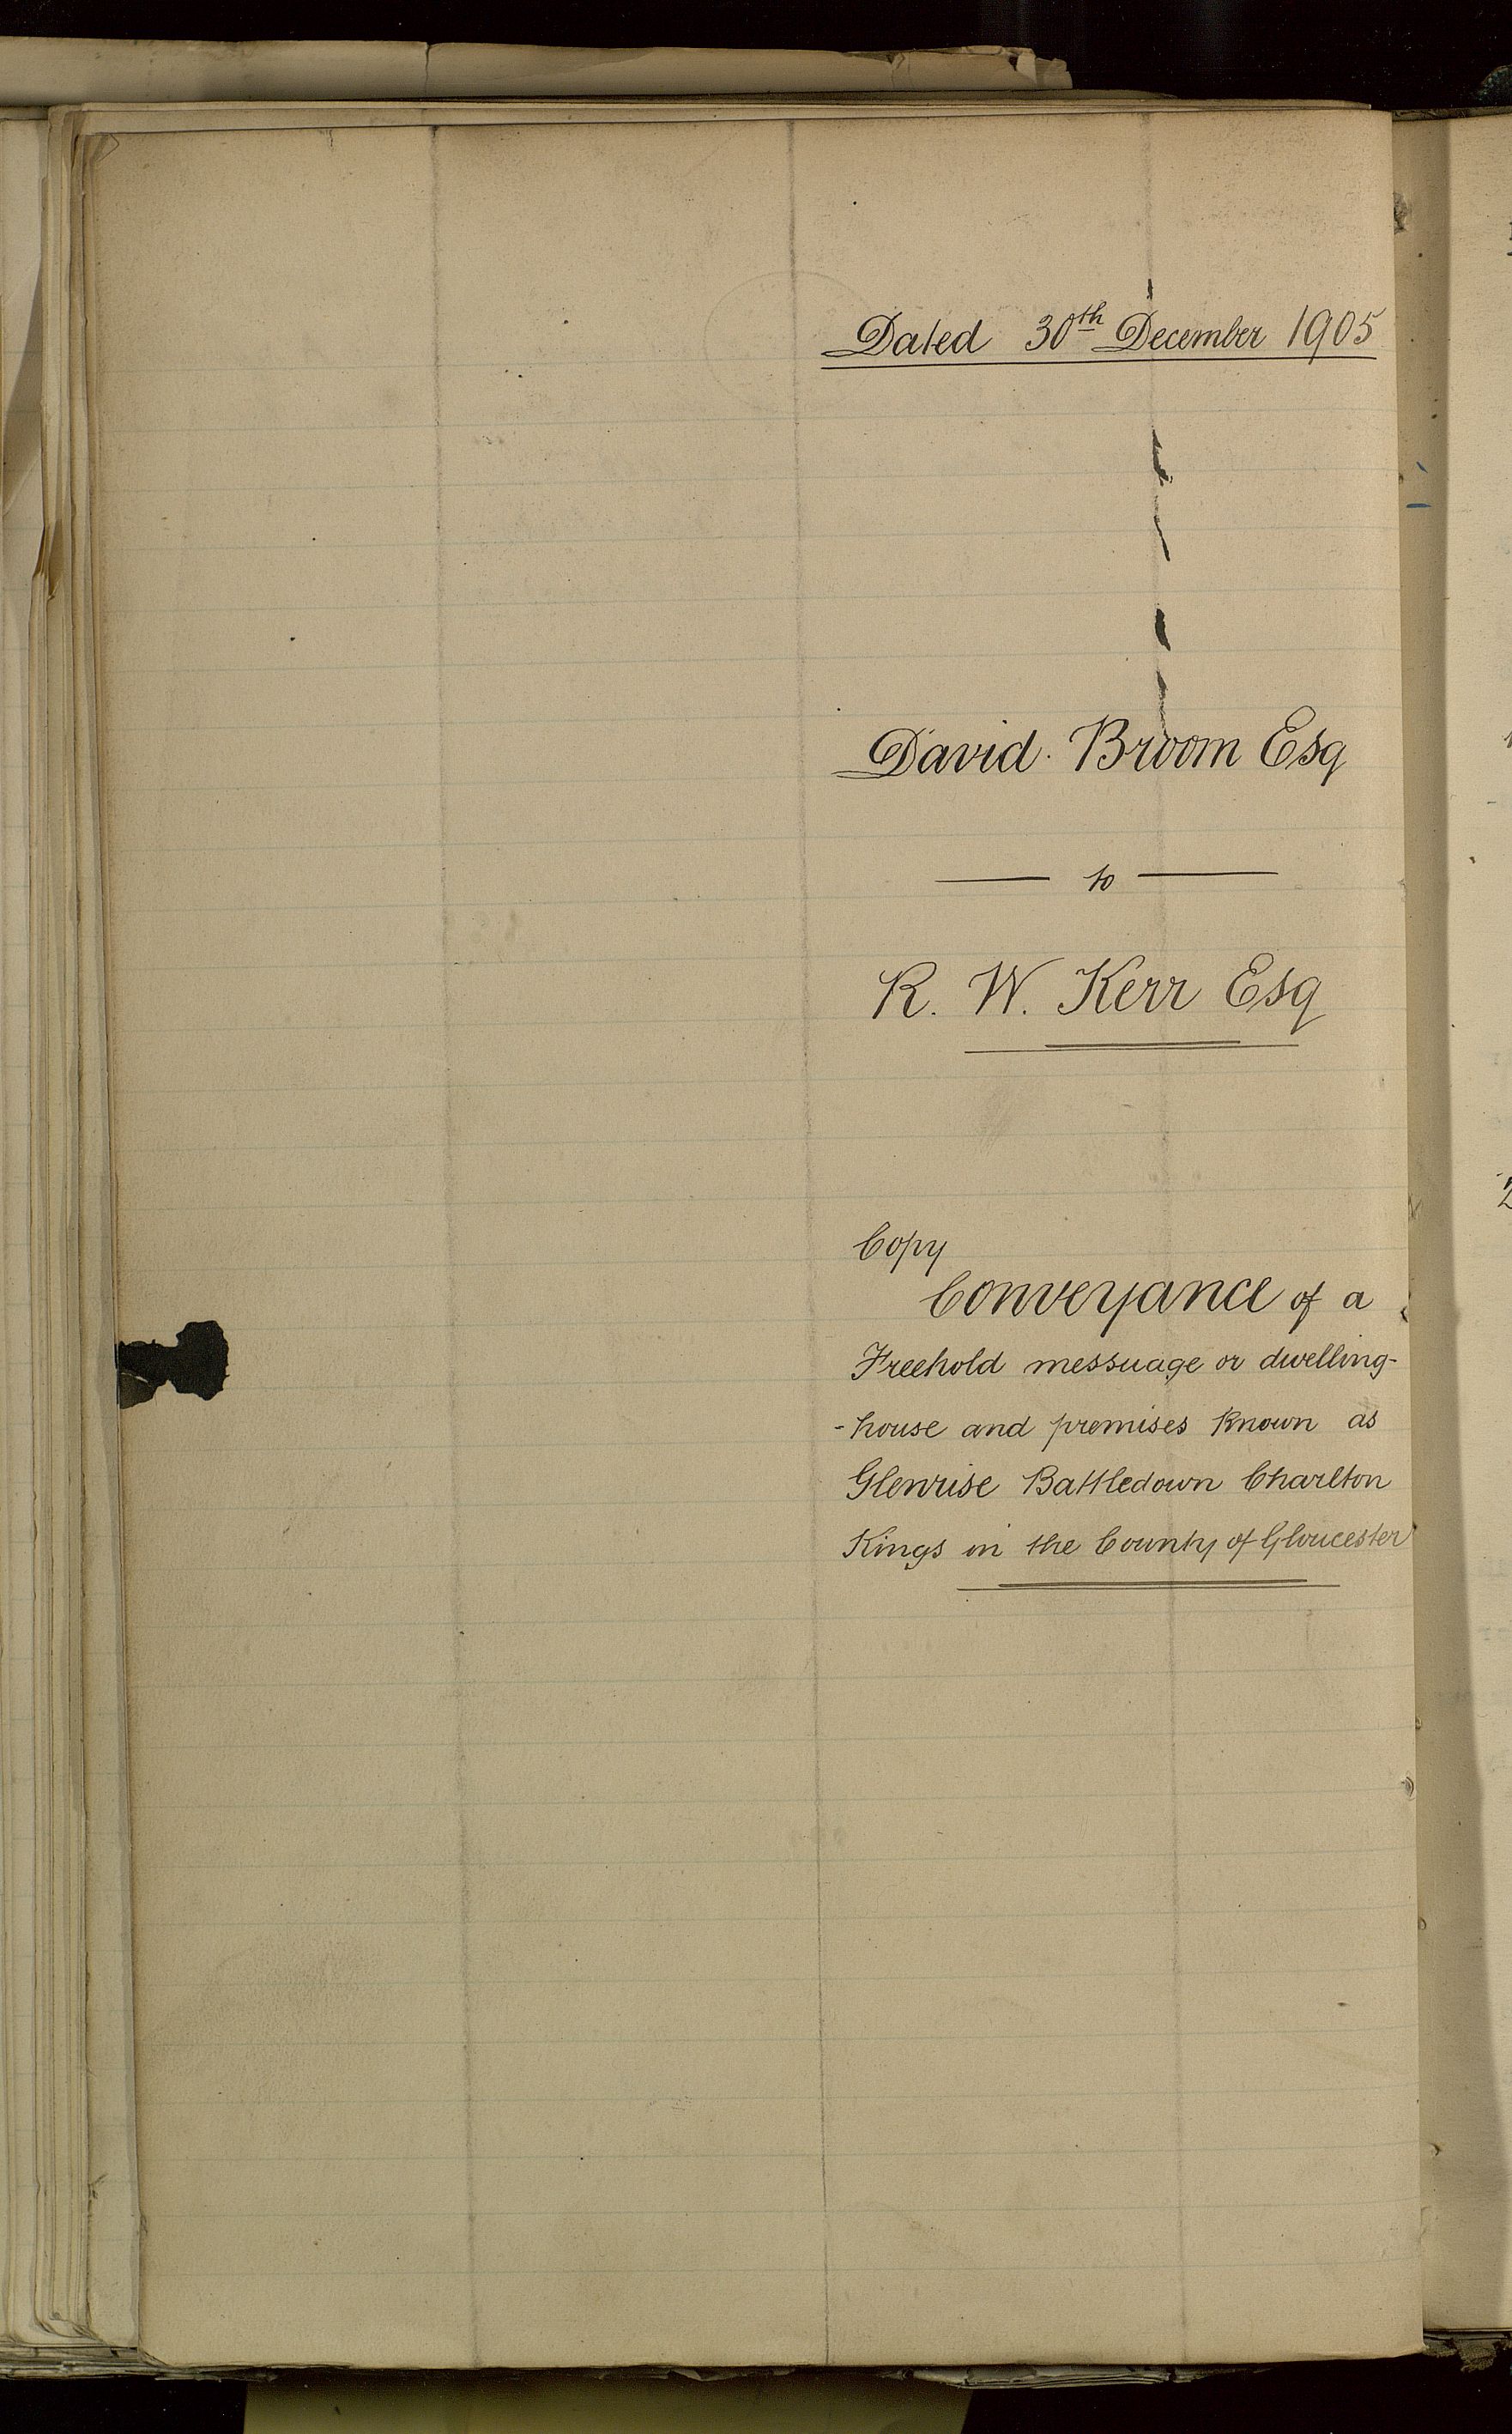 Dated 30th December 1905
David Broom Esq
to
R. W. Kerr Esq
Copy
Conveyance of a
Freehold messuage or dwelling-
-house and premises known as
Glenrise Battledown Charlton
Kings in the County of Gloucester